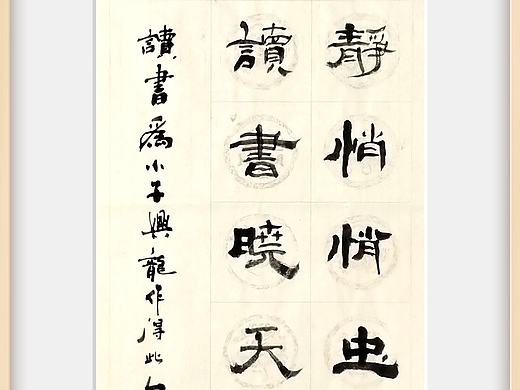 靜悄悄虫
讀書曉天
讀書爲小子興龍作得此